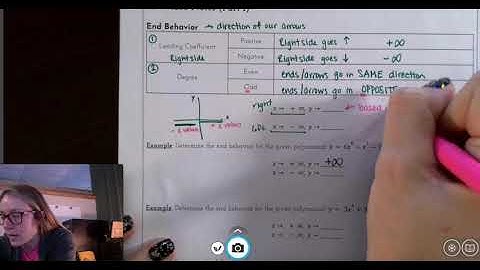 End Behavior → direction of our arrows
① Leading Coefficient Right side Positive Right side goes ↑ +∞
Negative Right side goes ↓ -∞
② Degree Even ends/arrows go in SAME direction
Odd ends/arrows go in OPPOSITE
y
x
- x values + x values
right x → + ∞, y → ← based
left x → - ∞, y →
Example: Determine the end behavior for the given polynomial
x → ∞, y → +∞
x → - ∞, y →
Example: Determine the end behavior for the given polynomial
x → ∞, y →
x → - ∞, y →